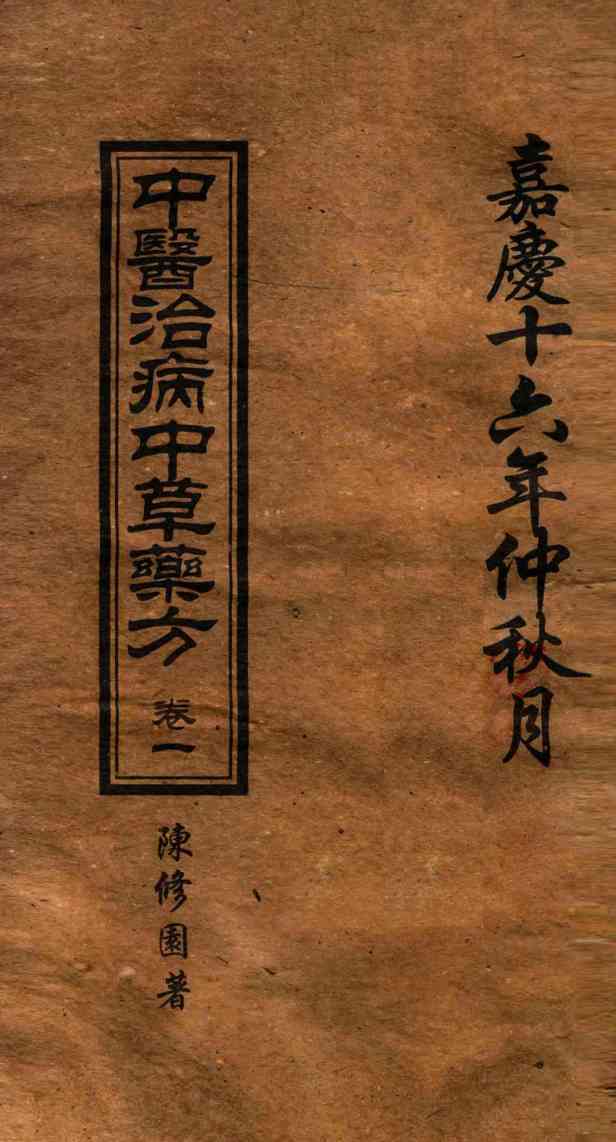 嘉慶十六年仲秋月
中醫治病中草藥方 卷一
陳修園著